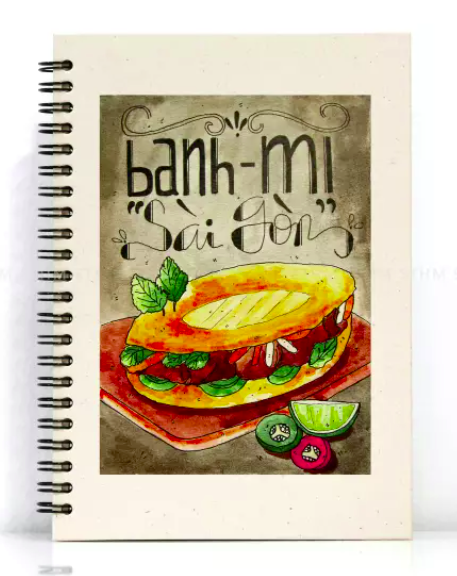 banh-mi
"Sài Gòn"